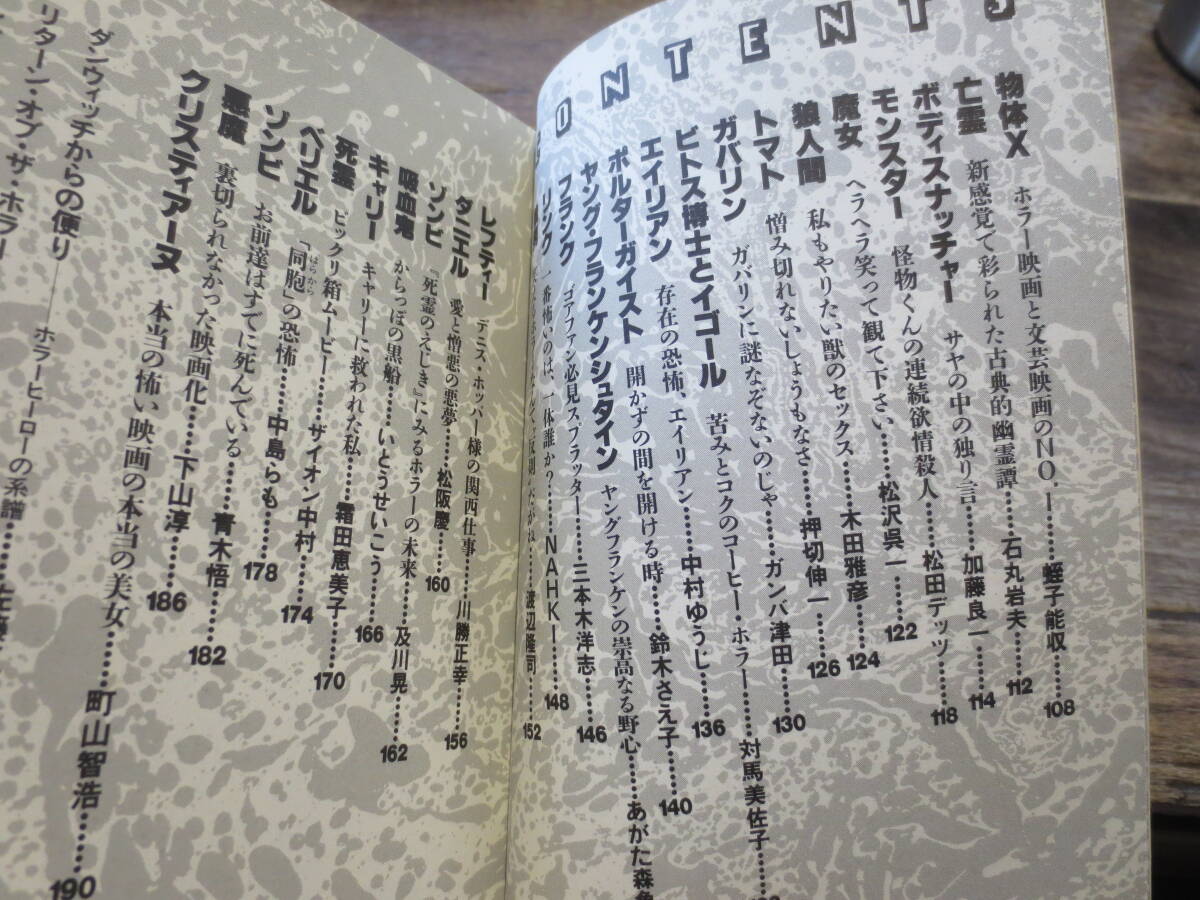 CONTENTS
物体X ホラー映画と文芸映画のNO.1……蛭子能収……108
亡霊 新感覚で彩られた古典的幽霊譚……石丸岩夫……112
ボディスナッチャー サヤの中の独り言……加藤良一……114
モンスター 怪物くんの連続欲情殺人……松田デッツ……118
魔女 ヘラヘラ笑って観て下さい……松沢呉一……122
狼人間 私もやりたい獣のセックス……木田雅彦……124
トマト 憎み切れないしょうもなさ……押切伸一……126
ガバリン ガバリンに謎なぞないのじゃ……ガンバ津田……130
ビトス博士とイゴール 苦みとコクのコーヒー・ホラー……対馬美佐子……
エイリアン 存在の恐怖、エイリアン……中村ゆうじ……136
ポルターガイスト 開かずの間を開ける時……鈴木さえ子……140
ヤング・フランケンシュタイン ヤングフランケンの崇高なる野心……あがた森魚
フランク ゴアファン必見スプラッター……三本木洋志……146
リンク 一番怖いのは、一体誰か?……NAHKI……148
渡辺隆司……152
レフティー デニス・ホッパー様の関西仕事……川勝正幸……156
タニエル 愛と憎悪の悪夢……松阪慶……160
ゾンビ 『死霊のえじき』にみるホラーの未来……及川晃……162
吸血鬼 からっぽの黒船……いとうせいこう……166
キャリー キャリーに救われた私……霜田恵美子……170
死霊 ビックリ箱ムービー……ザイオン中村……174
ベリエル 「同胞」の恐怖……中島らも……178
はらから
ゾンビ お前達はすでに死んでいる……青木悟……182
悪魔 裏切られなかった映画化……下山淳……186
クリスティアーヌ 本当の怖い映画の本当の美女……町山智浩……190
ダンウィッチからの便り——ホラーヒーローの系譜……
リターン・オブ・ザ・ホラー